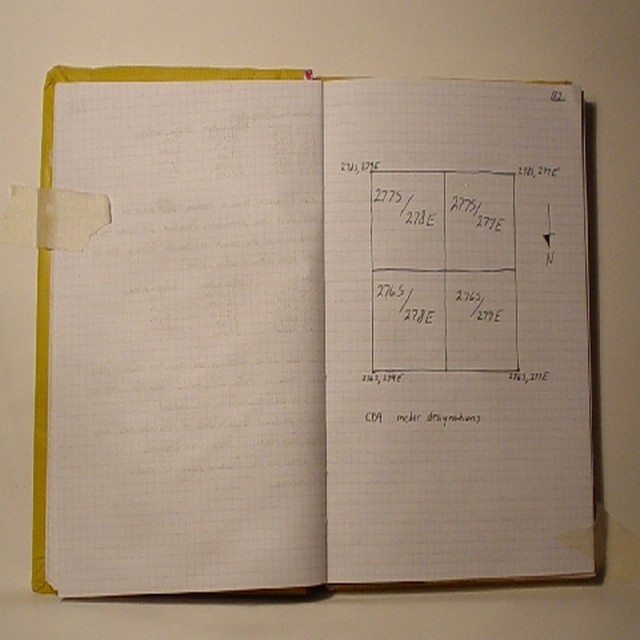 278S, 279E
278S, 277E
277S/278E
277S/277E
N
276S/278E
276S/277E
276S, 279E
276S, 277E
meter designations